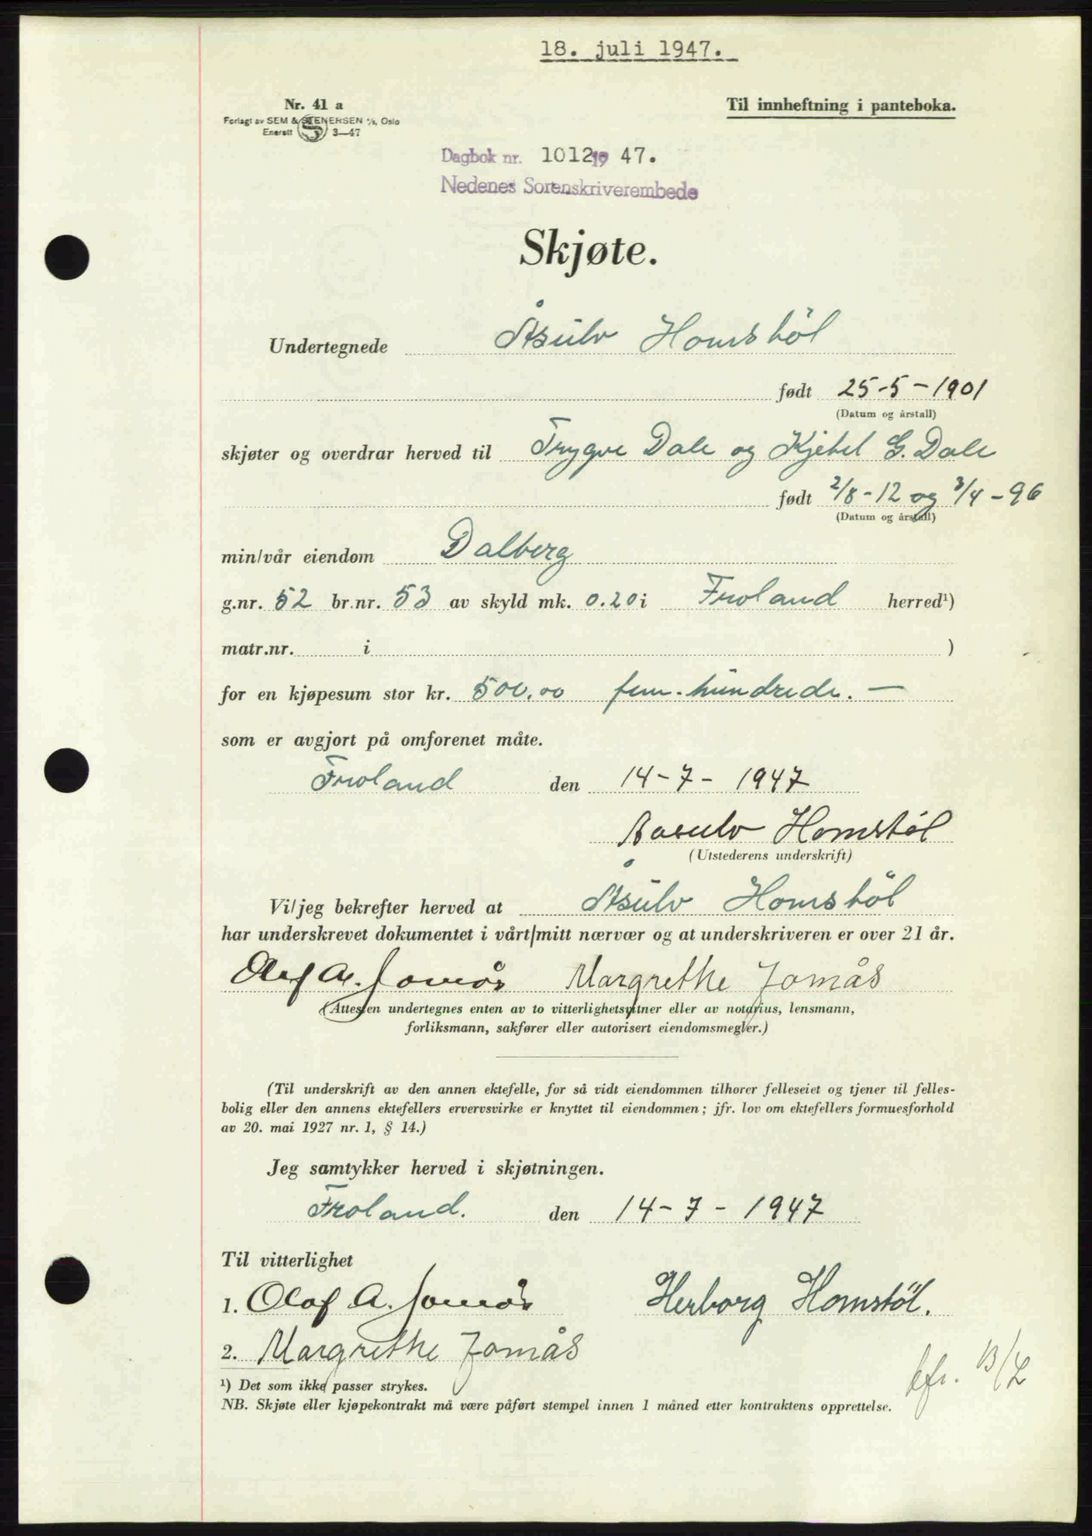 18. juli 1947.
Nr. 41 a
Til innheftning i panteboka.
Forlagt av SEM & STENERSEN A/S, Oslo
Enerett S 3—47
Dagbok nr. 1012 19 47.
Nedenes Sorenskriverembede
Skjøte.
Undertegnede Åsulv Homstöl
født 25-5-1901
(Datum og årstall)
skjøter og overdrar herved til Trygve Dale og Kjetil G. Dale
født 2/8-12 og 3/4-96
(Datum og årstall)
min/vår eiendom Dalberg
g.nr. 52 br.nr. 53 av skyld mk. 0.20 i Froland herred¹)
matr.nr. i )
for en kjøpesum stor kr. 500,00 fem-hundrede. —
som er avgjort på omforenet måte.
Froland den 14-7-1947
Aasulv Homstøl
(Utstederens underskrift)
Vi/jeg bekrefter herved at Åsulv Homstöl
har underskrevet dokumentet i vårt/mitt nærvær og at underskriveren er over 21 år.
Olaf A. Jomås Margrethe Jomås
(Attesten undertegnes enten av to vitterlighetsvitner eller av notarius, lensmann,
forliksmann, sakfører eller autorisert eiendomsmegler.)
(Til underskrift av den annen ektefelle, for så vidt eiendommen tilhorer felleseiet og tjener til felles-
bolig eller den annens ektefellers ervervsvirke er knyttet til eiendommen; jfr. lov om ektefellers formuesforhold
av 20. mai 1927 nr. 1, § 14.)
Jeg samtykker herved i skjøtningen.
Froland. den 14-7-1947
Til vitterlighet
1. Olaf A. Jomås Herborg Homstöl.
2. Margrethe Jomås
¹) Det som ikke passer strykes.
NB. Skjøte eller kjøpekontrakt må være påført stempel innen 1 måned etter kontraktens opprettelse.